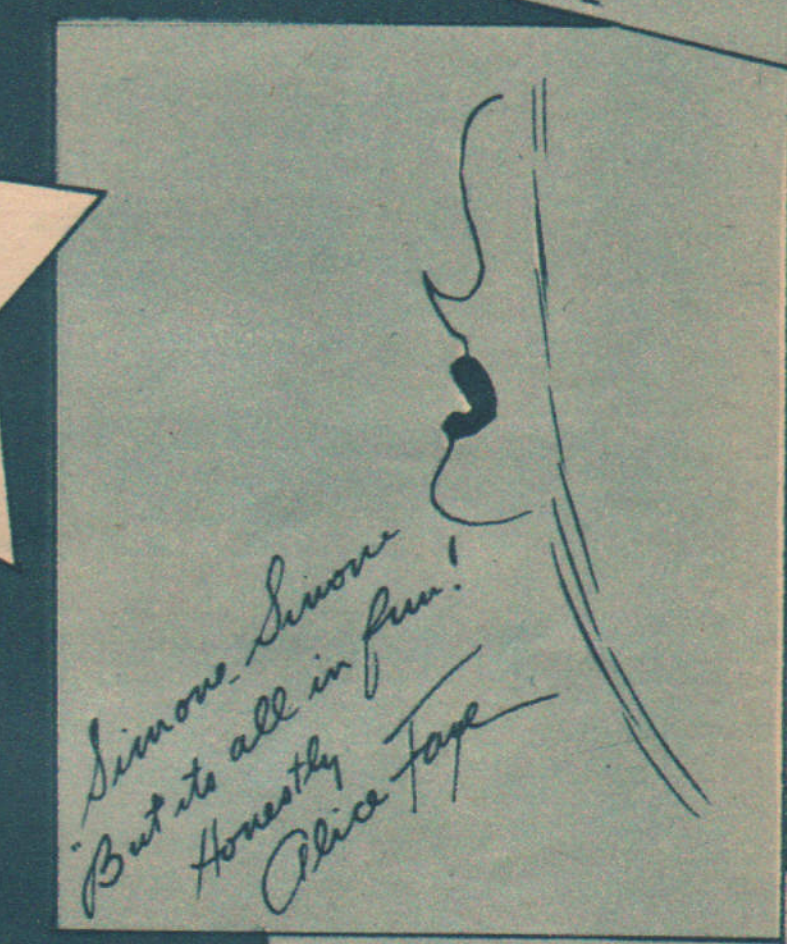 Simone Simone
"But its all in fun!
Honestly
Alice Faye